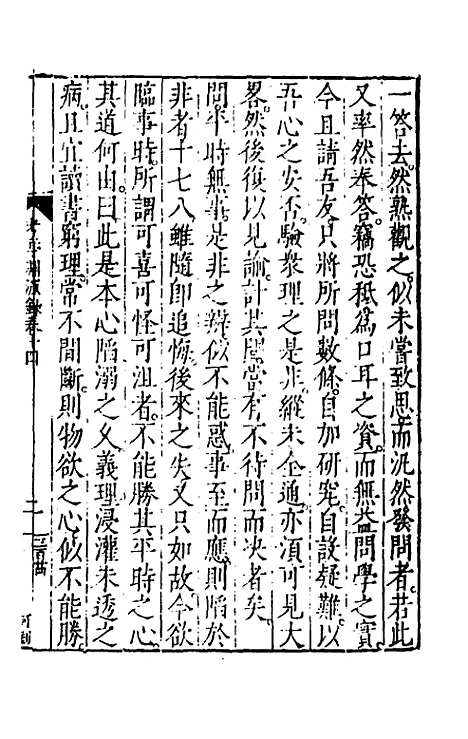 一答去然熟觀之似未嘗致思而汎然發問者若此
又率然奉答竊恐秪爲口耳之資而無益問學之實
今且請吾友只將所問數條自加研究自設疑難以
吾心之安否驗衆理之是非縱未全通亦湏可見大
畧然後復以見諭計其間當有不待問而决者矣
問平時無事是非之辨似不能惑事至而應則陷於
非者十七八雖隨即追悔後來之失又只如故今欲
臨事時所謂可喜可怪可沮者不能勝其平時之心
其道何由曰此是本心陷溺之乆義理浸灌未透之
病且宜讀書窮理常不間斷則物欲之心似不能勝
考亭淵源錄卷十四
二